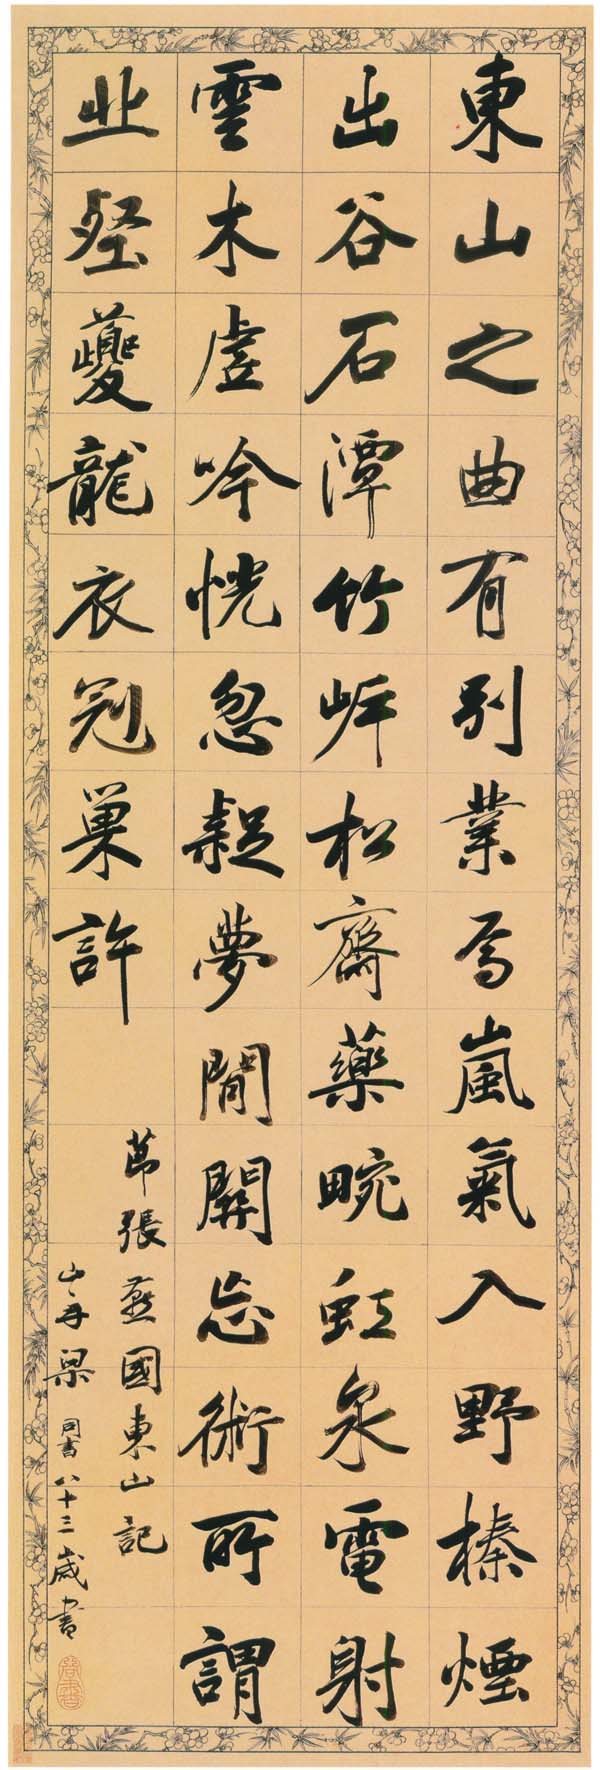 東山之曲有别業焉嵐氣入野榛煙
出谷石潭竹岸松齋藥畹虹泉電射
雲木虛吟恍忽疑夢閒關忘術所謂
丘壑夔龍衣冠巢許
節張燕國東山記
山舟梁同書八十三歲書